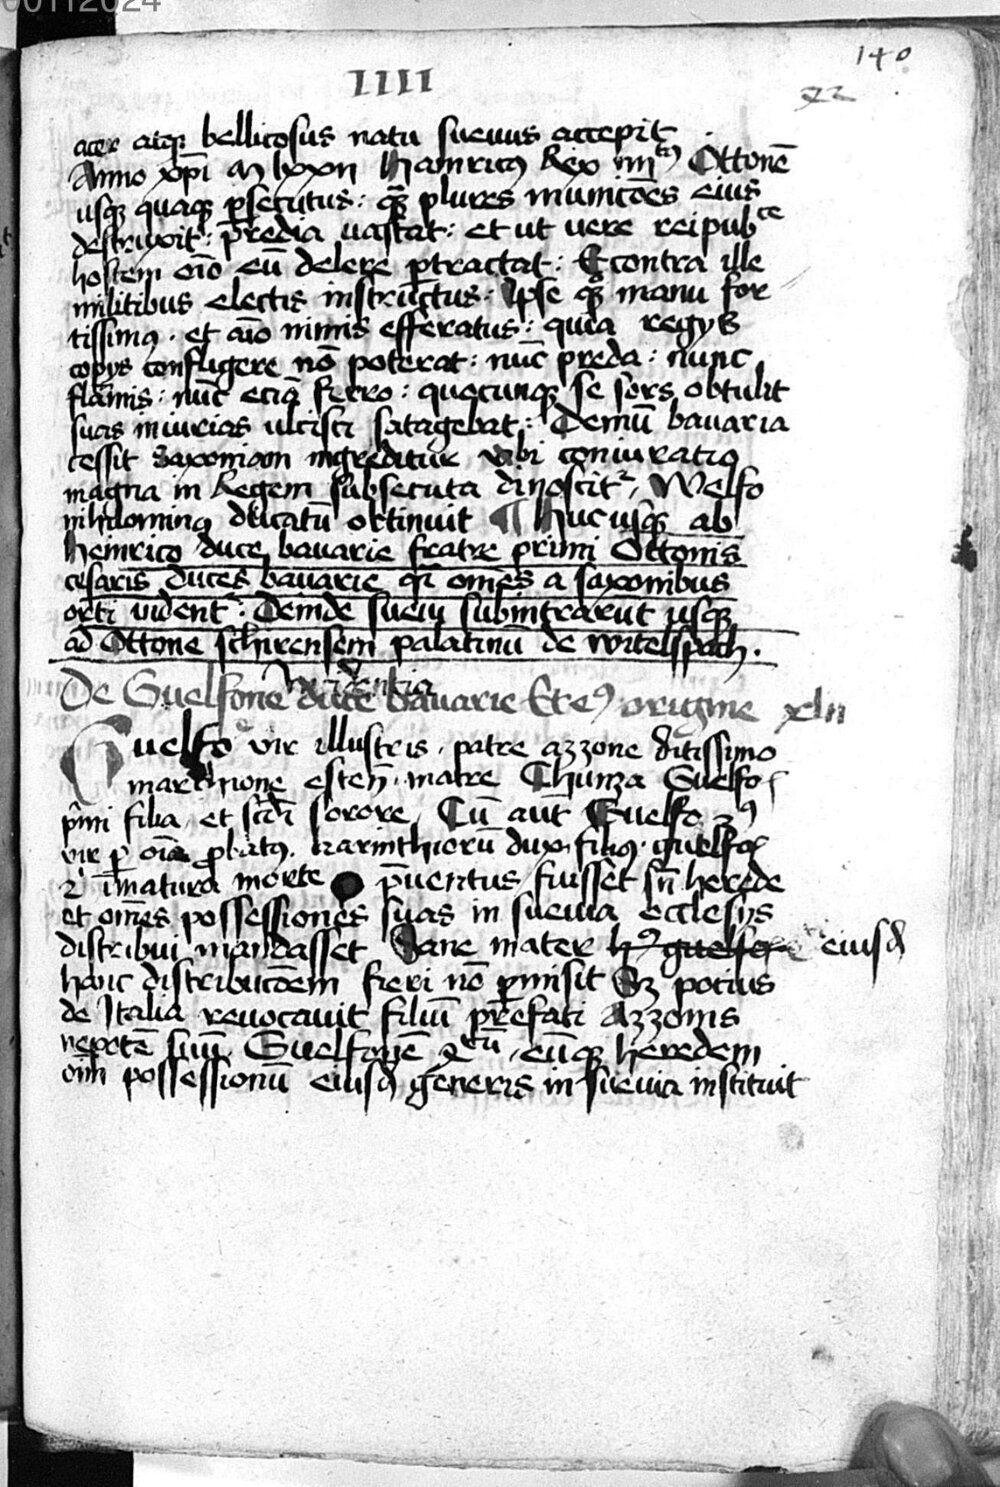 00112024
140
IIII
22
acer atq̄ bellicosus natu suevus accepit
Anno xp̄i M lxxii Hainricꝰ Rex iiiitꝰ Ottonē
usq̄ quaq̄ ꝑsecutus : qꝫ plures municōēs eius
destruxit : predia vastat : et ut vere reipubce
hostem oīo eū delere ꝑtractat : Econtra ille
militibus electis instructus : Ipse qꝫ manu for
tissimꝰ . et aīo nimis efferatus : quia regijs
copijs confligere nō poterat : nūc preda : nunc
flāmis : nūc eciā ferro : quocunqꝫ se sors obtulit
suas iniurias ulcisci satagebat : Demū bavaria
cessit Saxoniam ingreditur ubi coniuratio
magna in Regem subsecuta dinoscitʳ , Welfo
nihilominꝰ ducatū obtinuit ¶ Huc usqꝫ ab
Heinrico duce bavarie fratre primi Ottonis
cesaris duces bavarie qi omēs a saxonibus
orti vident : Deinde suevi subintrarūt usqꝫ
ad Ottone schirensem palatinū de witelspach .
De Guelfone duce bavarie Et eꝰ origine xlii
Guelfo vir illustris . patre azzone ditissimo
marchione estēn . matre Chunza Guelfoꝝ
p̄mi filia et scd̄i sorore , Cū aūt Guelfo 3ꝰ
vir ꝑ oīa ꝓbatꝰ . karinthiorū dux . filiꝰ . guelfoꝝ
2i īmatura morte p̄ventus fuisset sn̄ herede
et omēs possessiones suas in suevia ecclesijs
distribui mandasset Sane mater hꝰ guelfo eiusd̄
hanc distribucōem fieri nō ꝑmisit Sꝫ potius
de Italia revocavit filiū prefati Azzonis
nepotē suū Guelfonē 4tū , eūqꝫ heredem
oīm possessionū eiusd̄ generis in suevia instituit